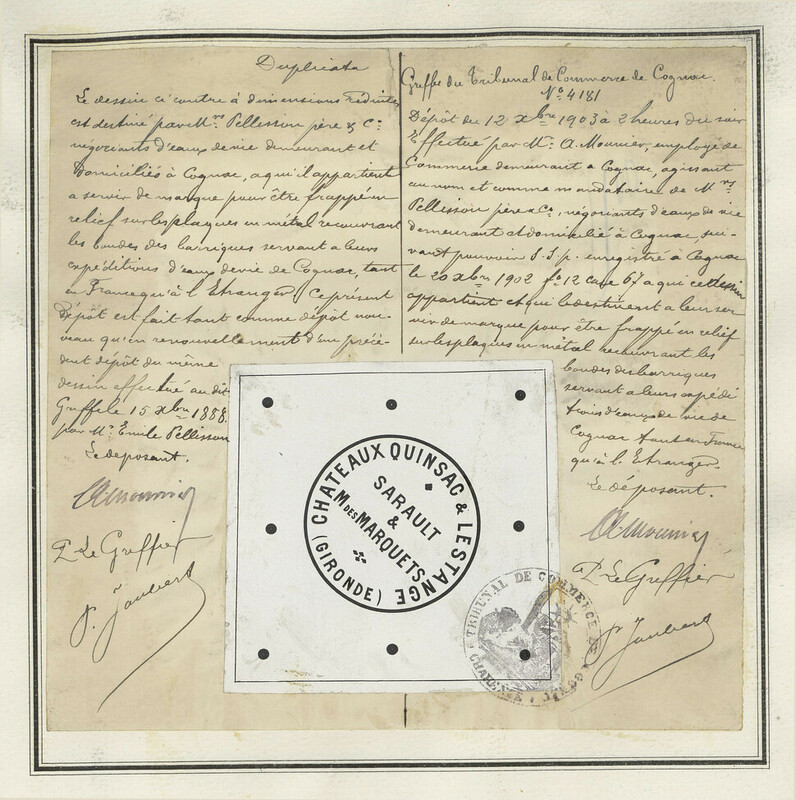 Duplicata
Le dessin ci contre à dimensions réduites
est destiné par Mrs Pellisson père & Co
négociants d'eaux de vie demeurant et
domiciliés à Cognac, a qui il appartient
a servir de marque pour être frappé en
relief sur les plaques en métal recouvrant
les bondes des barriques servant a leurs
expéditions d'eaux de vie de Cognac, tant
en France qu'à l'Etranger. Ce présent
Dépôt est fait tant comme dépôt nou-
veau qu'en renouvellement d'un précé-
dent dépôt du même
dessin effectué au dit
Greffe le 15 Xbre 1888.
par Mr Emile Pellisson
Le déposant.
A. Mounier
P. Le Greffier
P. Jaubert
Greffe du Tribunal de Commerce de Cognac.
No 4181
Dépôt du 12 Xbre 1903 à 2 heures du soir
Effectué par Mr A. Mounier, employé de
Commerce demeurant a Cognac, agissant
au nom et comme mandataire de Mrs
Pellisson père & Co, négociants d'eaux de vie
demeurant et domicilié à Cognac, sui-
vant pouvoir S.S.p. enregistré à Cognac
le 20 Xbre 1902 fo 12 case 67 a qui ce dessin
appartient et qui le destinent a leur ser
vir de marque pour être frappé en relief
sur les plaques en métal recouvrant les
bondes des barriques
servant a leurs expédi
tions d'eaux de vie de
Cognac tant en France
qu'à l'Etranger.
Le déposant.
A. Mounier
P. Le Greffier
P. Jaubert
CHATEAUX QUINSAC & LESTANGE
SARAULT
&
M DES MARQUETS
(GIRONDE)
TRIBUNAL DE COMMERCE DE COGNAC
CHARENTE